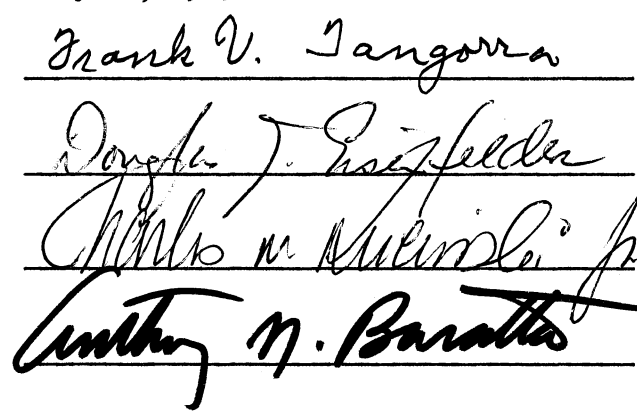 Frank V. Tangorra
Douglas T. Eisenfelder
Charles M Kucinski Jr
Anthony N. Baratta